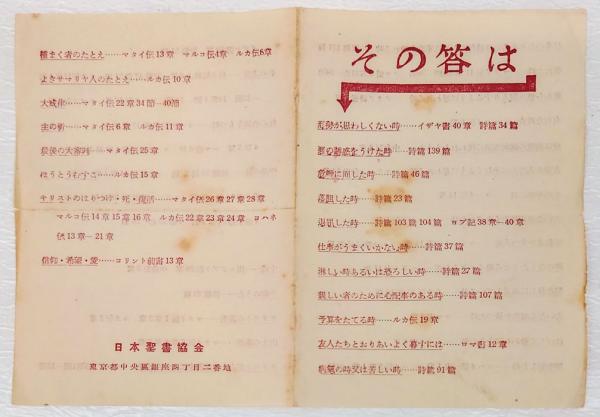 種まく者のたとえ……マタイ伝13章 マルコ伝4章 ルカ伝8章
よきサマリヤ人のたとえ……ルカ伝10章
大誡律……マタイ伝22章34節―40節
主の祈……マタイ伝6章 ルカ伝11章
最後の大審判……マタイ伝25章
ほうとうむすこ……ルカ伝15章
キリストのはりつけ・死・復活……マタイ伝26章27章28章
マルコ伝14章15章16章 ルカ伝22章23章24章 ヨハネ
伝13章―21章
信仰・希望・愛……コリント前書13章
日本聖書協会
東京都中央區銀座四丁目二番地
その答は
が思わしくない時……イザヤ書40章 詩篇34篇
悪の誘惑をうけた時……詩篇139篇
に面した時……詩篇46篇
した時……詩篇23篇
退屈した時……詩篇103篇104篇 ヨブ記38章―40章
仕事がうまくいかない時……詩篇37篇
淋しい時あるいは恐ろしい時……詩篇27篇
親しい者のために心配事のある時……詩篇107篇
予算をたてる時……ルカ伝19章
友人たちとおりあいよく暮すには……ロマ書12章
病気の時又は苦しい時……詩篇91篇